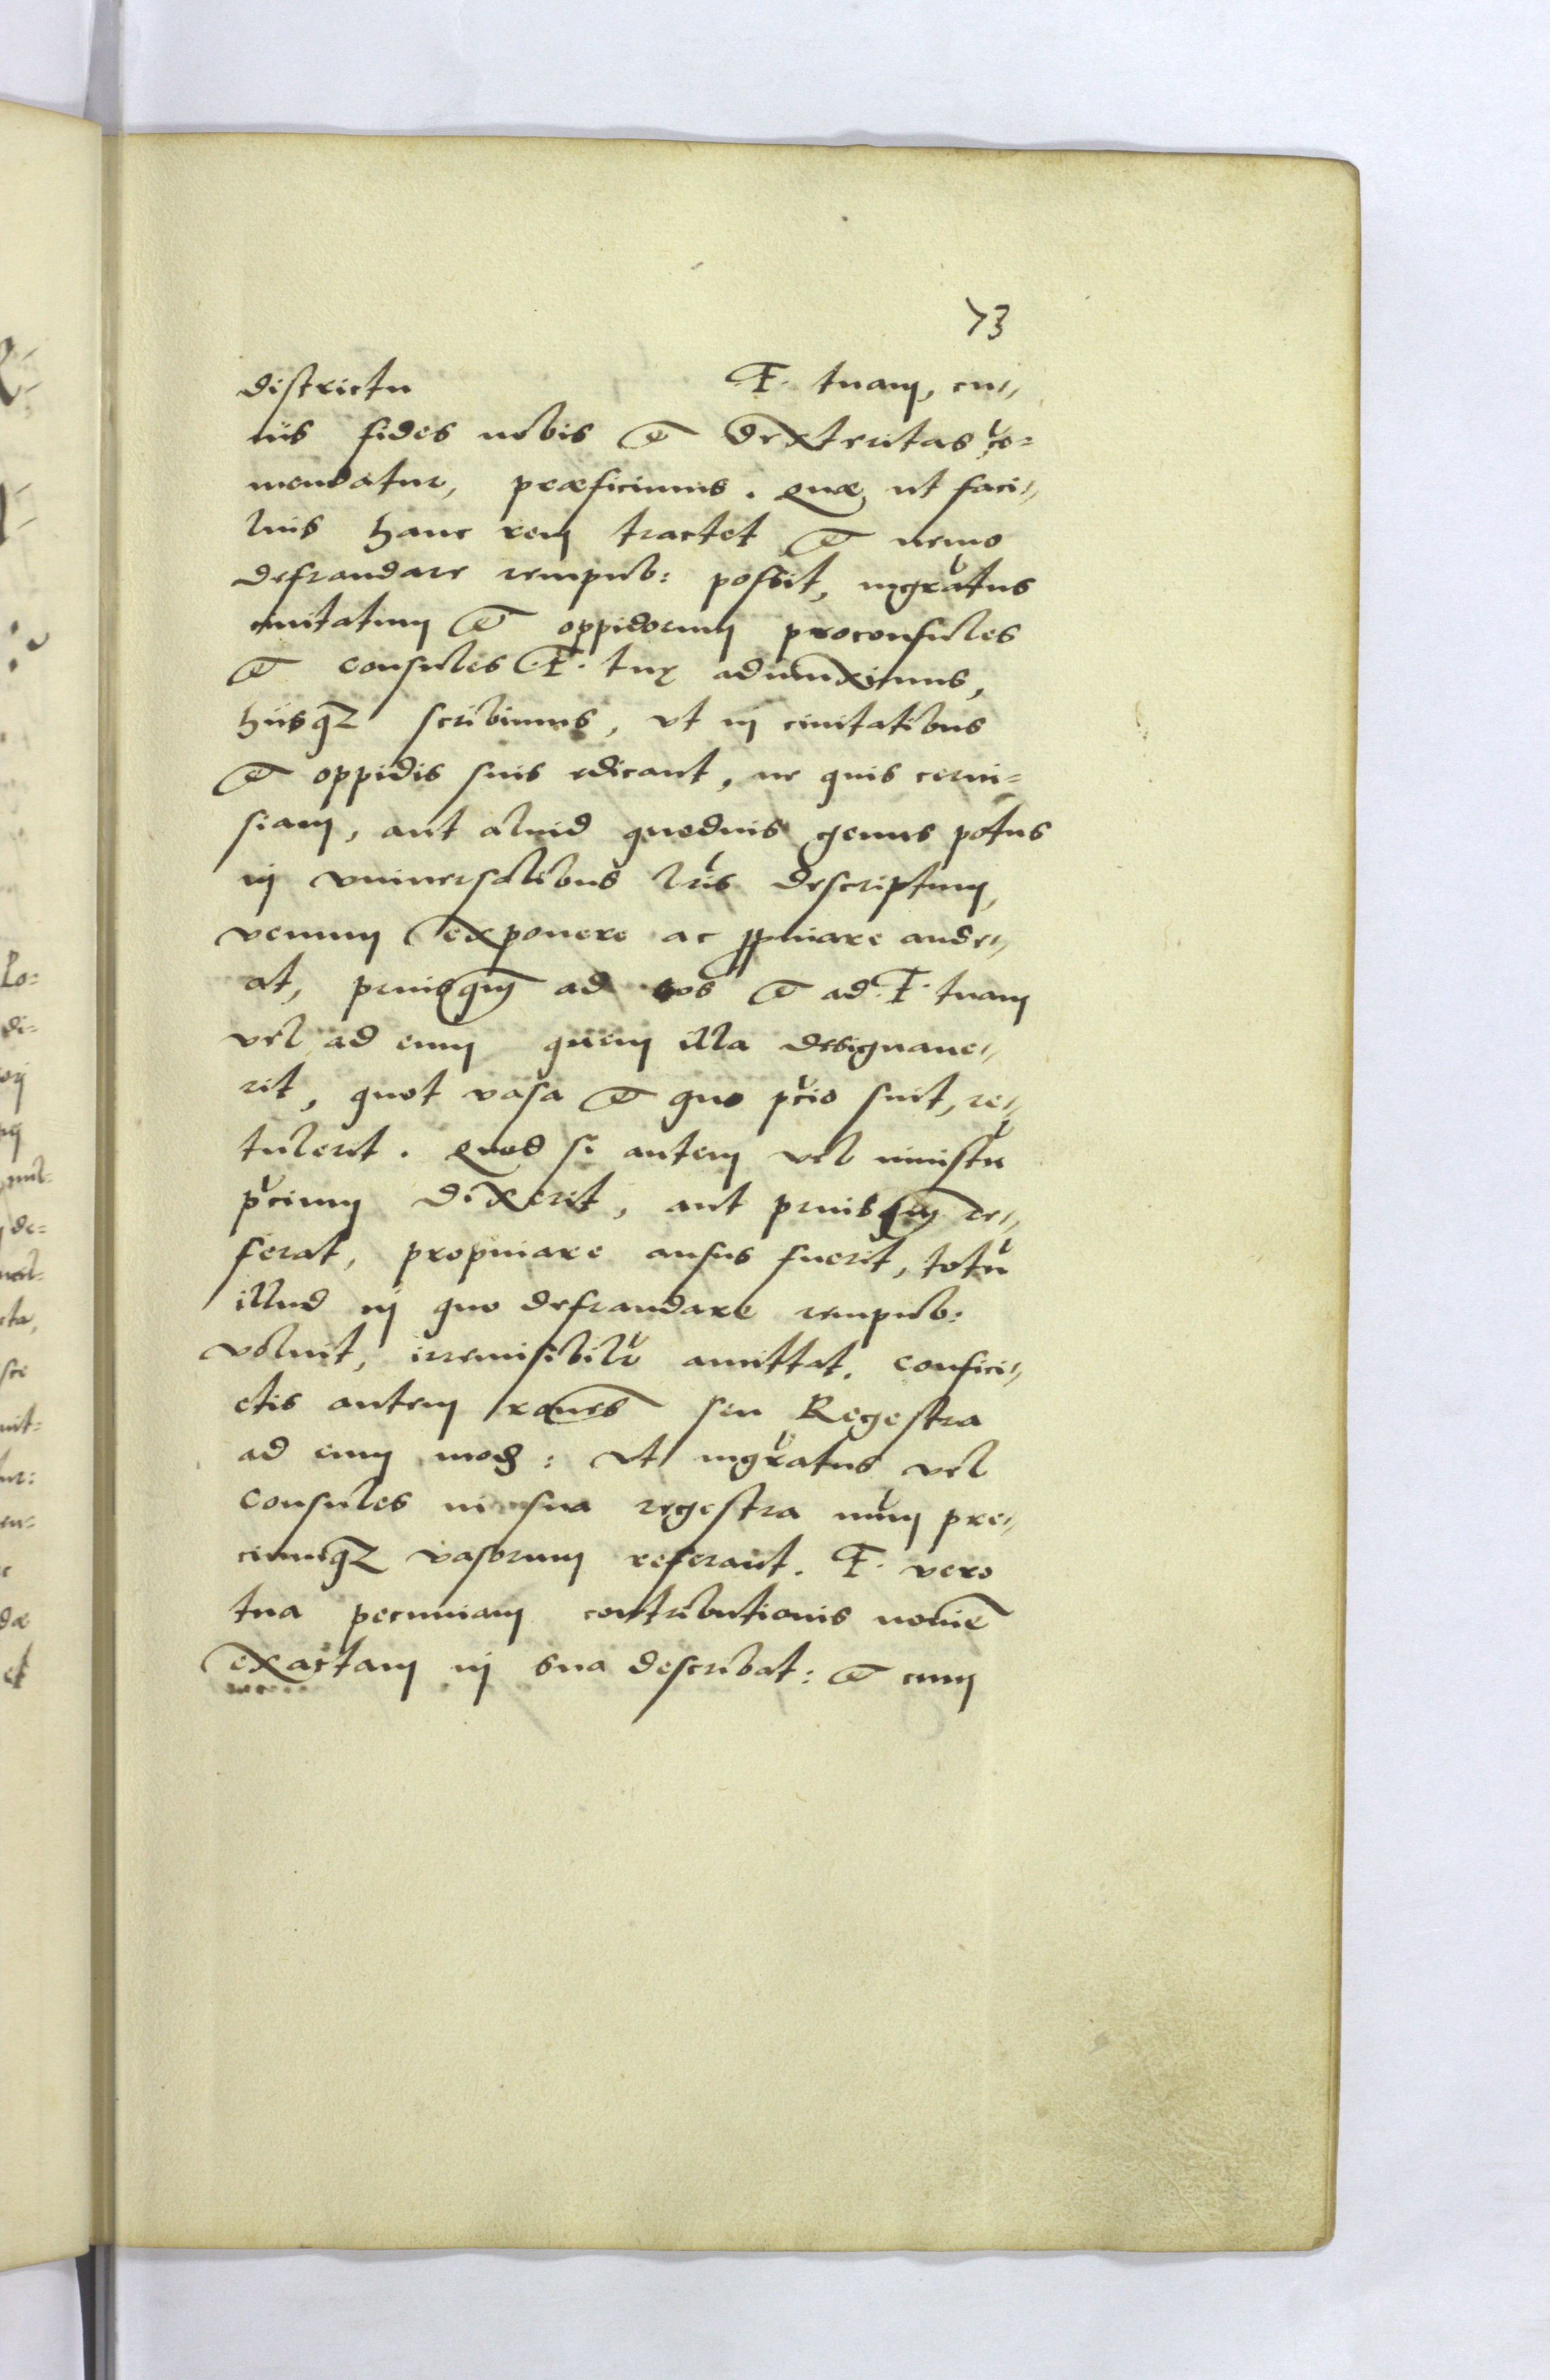 73
districtu F. tuam, cu-
ius fides nobis et dexteritas co-
mendatur, præficimus. Quæ ut faci-
lius hanc rem tractet et nemo
defraudare rempub: possit, mgratus
ciuitatum et oppidorum proconsules
et consules F. tuę adiunximus,
hiisq3 scribimus, vt in ciuitatibus
et oppidis suis edicant, ne quis cerui-
siam, aut aliud quoduis genus potus
in vniuersalibus lris descriptum,
venum exponere ac ppinare aude-
at, priusqm ad eos et ad F. tuam
vel ad eum quem illa designaue-
rit, quot vasa et quo pcio sint, re-
tulerit. Quod si autem vel iniustu
pcium dixerit, aut priusqm re-
ferat, propinare ausus fuerit, totu
illud in quo defraudare rempub:
voluit, irremisibilr amittat. Confici-
etis autem rones seu Regestra
ad eum mod: Vt mgratus vel
consules in sua regestra num pre-
ciumq3 vasorum referant. F. vero
tua pecuniam contributionis nomie
exactam in sua describat: et cum